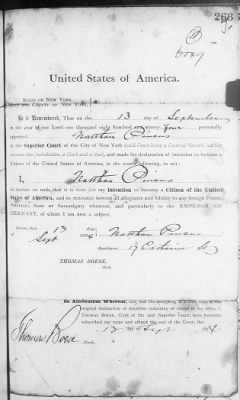 268
United States of America.
STATE OF NEW YORK,
CITY AND COUNTY OF NEW YORK,
Be it Remembered, That on the 13 day of September
in the year of our Lord one thousand eight hundred and ninety four personally
appeared Nathan
in the Superior Court of the City of New York (said Court being a Court of Record, having
common law jurisdiction, a Clerk and a Seal), and made his declaration of intention to become a
Citizen of the United States of America, in the words following, to wit:
I, Nathan
do declare on oath, that it is bona fide my intention to become a Citizen of the United
States of America, and to renounce forever all allegiance and fidelity to any foreign Prince,
Potentate, State or Sovereignty whatever, and particularly to the EMPEROR OF
GERMANY, of whom I am now a subject.
Sworn, this 13 day
Sept 1894 Nathan
Residence
THOMAS BOESE,
Clerk.
In Attestation Whereof, and that the foregoing is a true copy of the
original declaration of intention remaining of record in my office, I
THOMAS BOESE, Clerk of the said Superior Court, have hereunto
subscribed my name and affixed the seal of the Court, the
13 day of Sept 1894
Thomas Boese
Clerk.